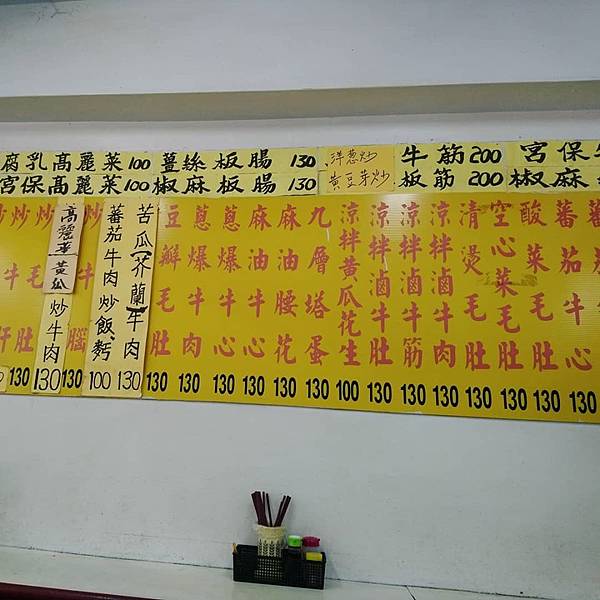 腐乳高麗菜100
宮保高麗菜100
薑絲板腸 130
椒麻板腸 130
洋蔥炒
黃豆芽炒
牛筋200
板筋200
宮保
椒麻
高麗菜 黃瓜 炒牛肉 130
蕃茄牛肉炒飯、麵 100
苦瓜(芥蘭)牛肉 130
豆瓣毛肚 130
蔥爆牛肉 130
蔥爆牛心 130
麻油牛心 130
麻油腰花 130
九層塔蛋 130
涼拌黃瓜花生 100
涼拌滷牛肚 130
涼拌滷牛筋 130
涼拌滷牛肉 130
清燙毛肚 130
空心菜毛肚 130
酸菜毛肚 130
蕃茄牛心 130